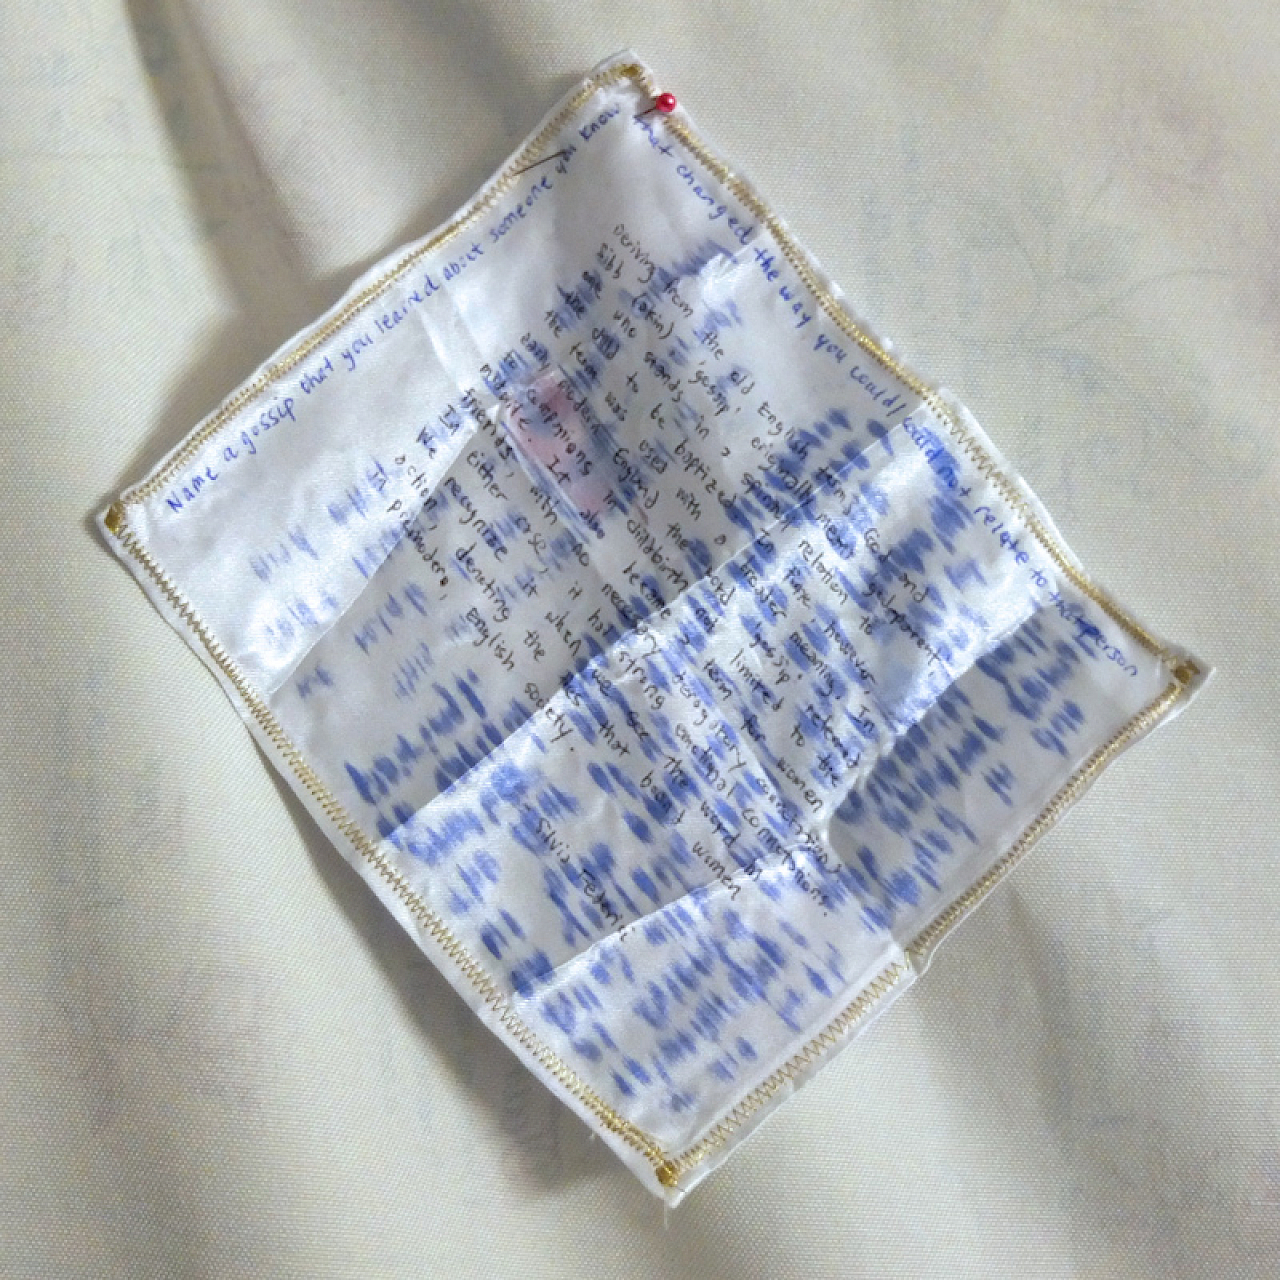 Name a gossip that you learned about someone you know
that changed the way you could/couldn't relate to that person
Deriving from the old English terms God and
Sibb (akin), 'gossip' originally meant 'godparent',
one who stands in a spiritual relation to
the child to be baptized. In time however,
the term was used with a broader meaning. In
early modern England the word 'gossip' referred
to companions in childbirth not limited to the
midwife. It also became a term for women
friends, with no necessary derogatory connotations.
In either case, it had strong emotional connotations.
We recognize it when we see the word in
action, denoting the ties that bound women
In premodern English society.
Silvia Federici